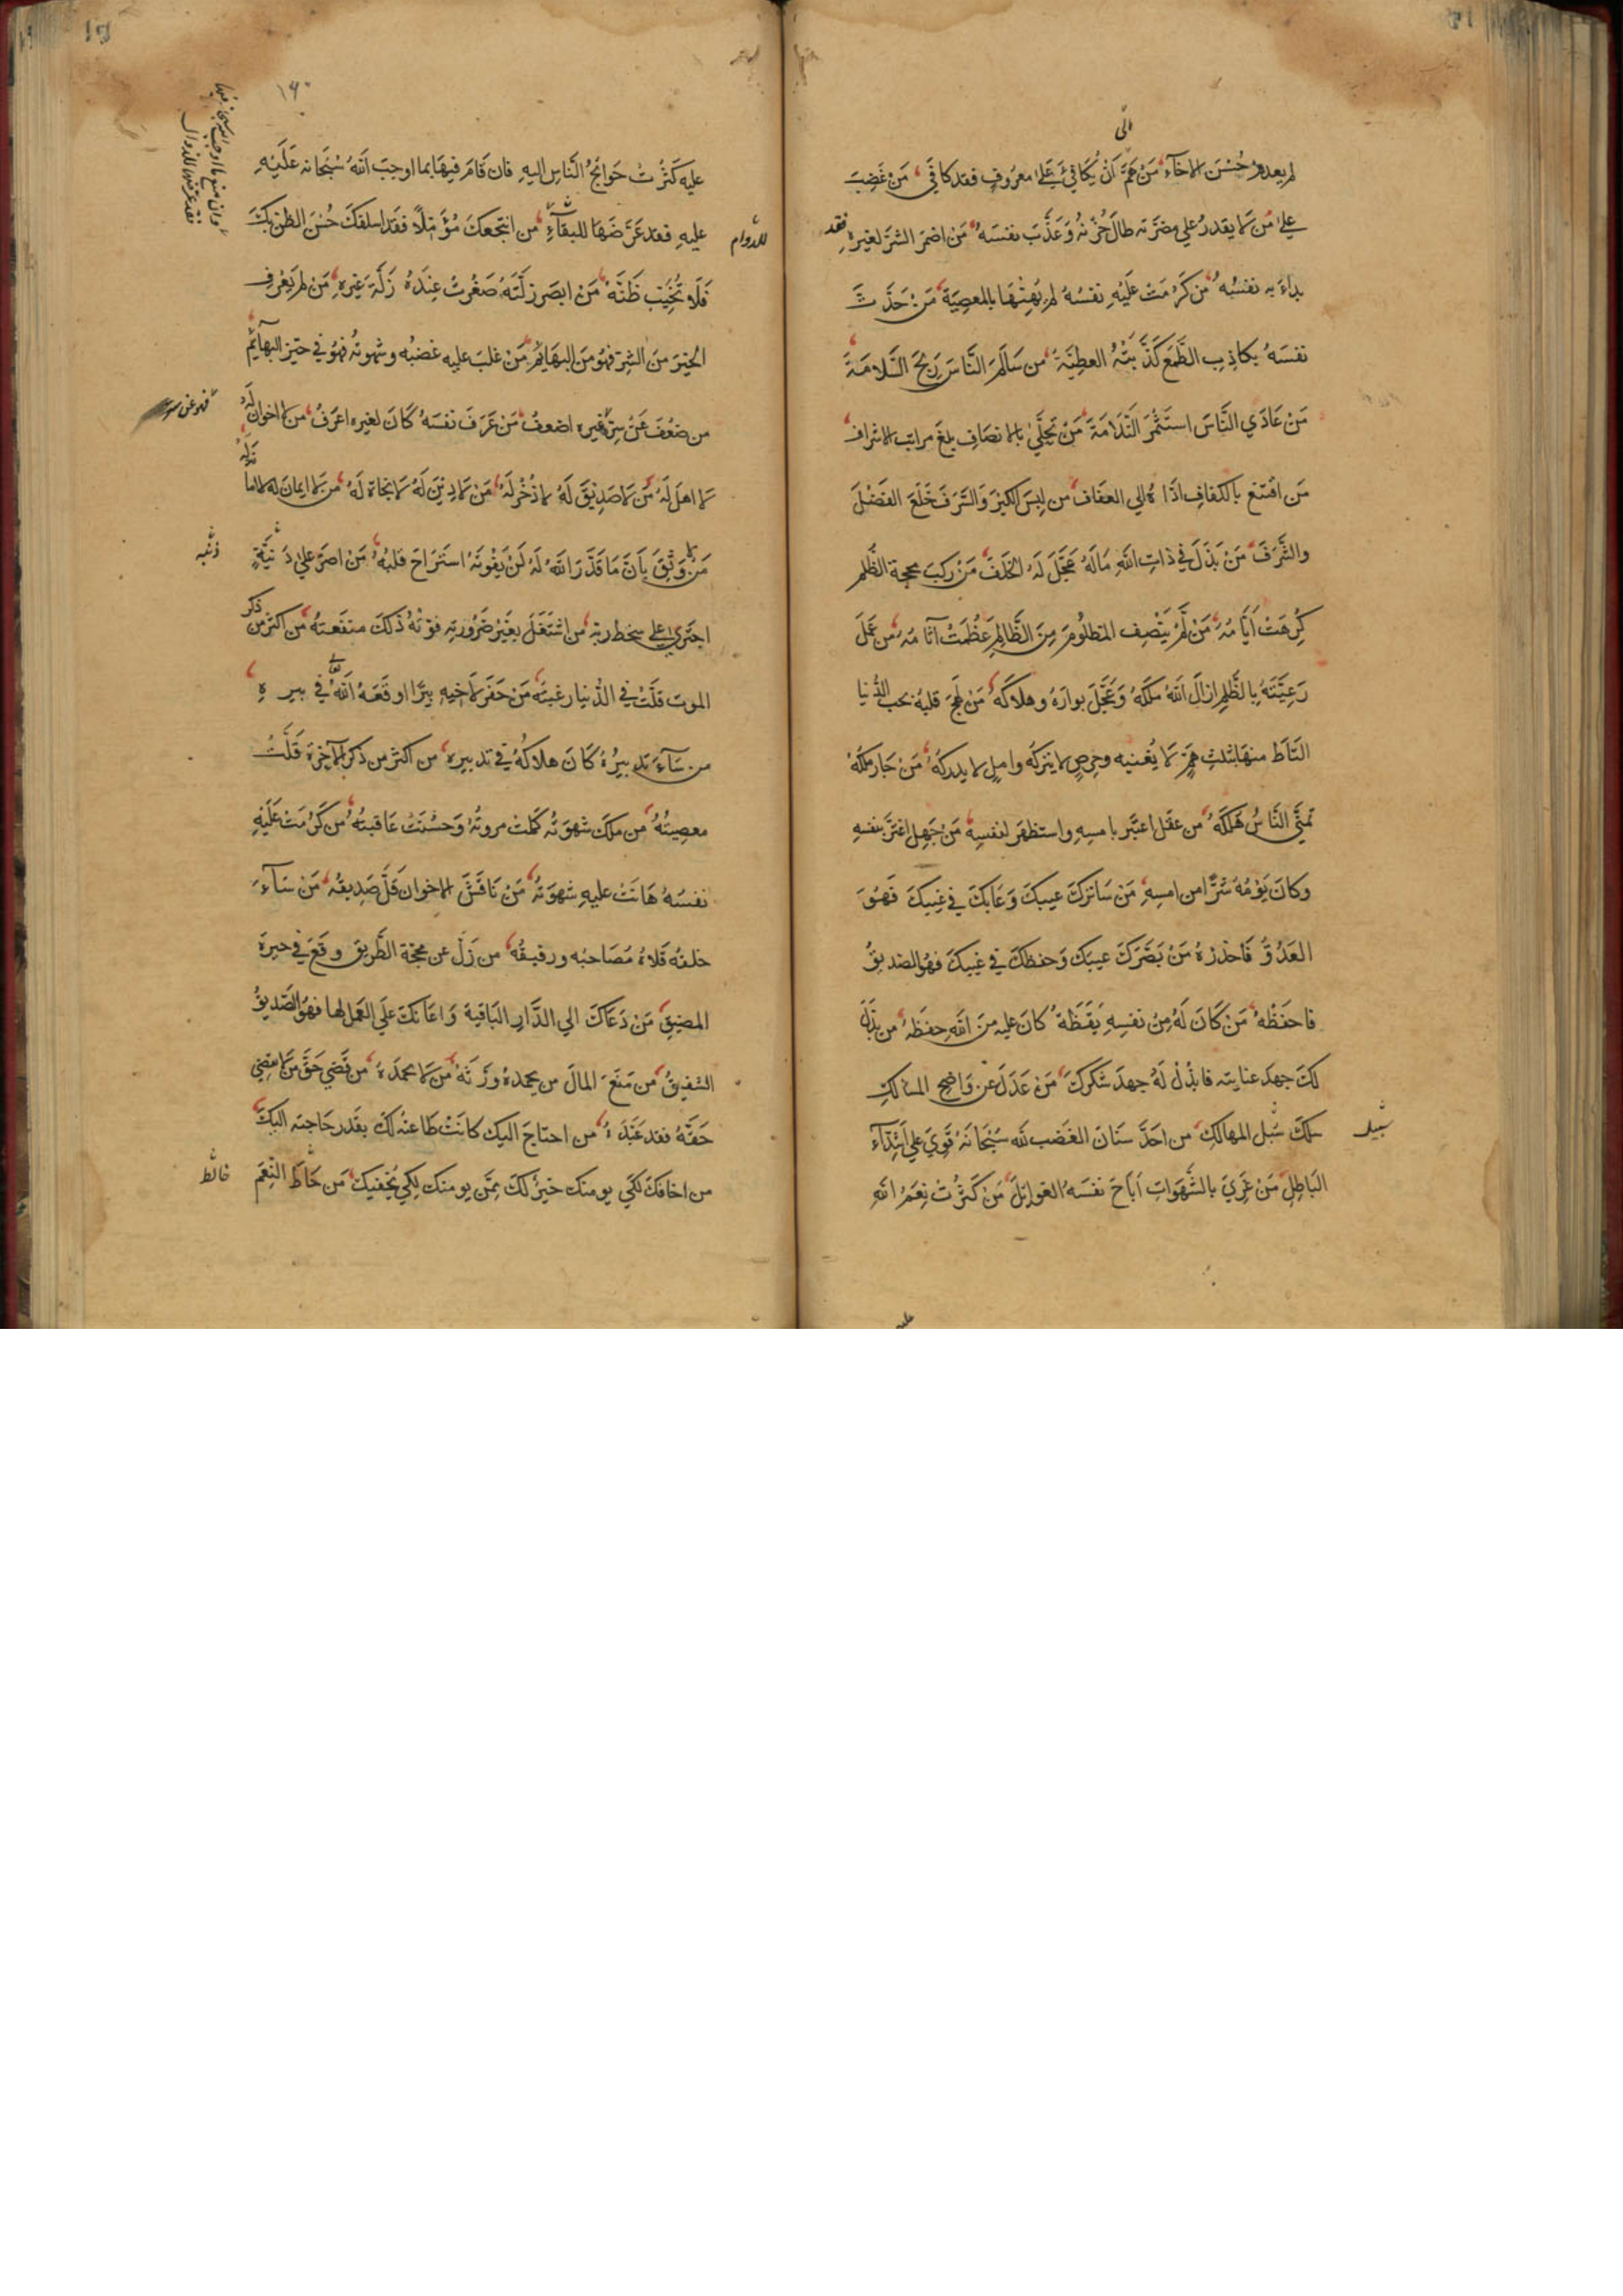 الى
لم يعدم حُسْنَ الاخآءِ مَنْ هَمَّ اَنْ يُكَافِئَ عَلى معرُوفٍ فقد كافَى مَنْ غَضِبَ
على مَن لا يقدرُ على مضرّته طالَ حُزْنُهُ وَعَذَّبَ نفسَهُ مَن اضمَرَ الشرَّ لغيره فقد
بداءَ به نفسُهُ مَن كَرُمَتْ عَلَيْهِ نفسُهُ لم يُهِنْهَا بالمعصِيَةِ مَنْ حَدَّثَ
نفسَهُ بكاذِبِ الطَّمَعِ كَذَّبَتْهُ العطِيَّةُ من سَالَمَ النَّاسَ رَبِحَ السَّلامَةَ
مَنْ عَادَي النَّاسَ استَثْمَرَ النَّدَامَةَ مَنْ تَحَلَّىٰ بالانصَافِ بلغَ مراتب الاشراف
مَن اقتنع بالكفافِ ادَّاهُ الي العفَافِ من لبِسَ الكبْرَ وَالسَّرَفَ خَلَعَ الفَضْلَ
والشَّرَفَ مَنْ بَذَلَ في ذاتِ اللهِ مَالَهُ عَجَّلَ لَهُ الخَلَفَ مَنْ ركبَ محجة الظُّلم
كُرِهَتْ اَيَّامُهُ مَنْ لَمْ يُنْصِفِ المظلُومَ مِنَ الظَّالِمِ عَظُمَتْ آثَامُهُ مَن عَمِلَ
رَعِيَّتَهُ بِالظُّلمِ ازالَ اللهُ ملكَهُ وَعَجَّلَ بوارَهُ وهلاكَهُ مَنْ لَهِجَ قلبُهُ بحب الدُّنيا
التَاطَ منهَا بثلثٍ هَمٍّ لا يُغنيه وحِرصٍ لا يتركُه واملٍ لا يدركُهُ مَنْ جَارَ ملكُهُ
تمنَّي النَّاسُ هُلكَهُ من عقَل اعتبَر بامسِهِ واستظهَرَ لنفسِهِ مَنْ جَهِل اغترَّ بنفسِهِ
وكانَ يَوْمُهُ شرًّا من امسِهِ مَنْ سَاتركَ عيبكَ وَعَابَكَ في غيبِكَ فَهُوَ
العَدُوُّ فَاحْذرْهُ مَنْ بَصَّرَكَ عيبكَ وَحفظكَ في غيبكَ فهُو الصَّديقُ
فاحفَظْهُ مَنْ كَانَ لَهُ مِنْ نفسِهِ يَقَظَةٌ كانَ عليه مِنَ اللهِ حفَظَةٌ من بذَلَ
لكَ جهدَ عنايته فابذُلْ لَهُ جهدَ شكركَ مَنْ عَدَلَ عن وَاضِحِ المسَالكِ
سلكَ سُبُل المهالكِ من احَدَّ سنَانَ الغَضب لله سُبْحَانَهُ قَوِيَ علي اشِدّآءِ
سَبيلَ
البَاطِلِ مَنْ غَرِيَ بالشَّهَواتِ اَبَاحَ نفسَهُ الغوائِلَ مَنْ كَثُرتْ نِعَمُ الله
١٩٠
عليه كَثُرَتْ حَوَائجُ النَّاس اليهِ فان قَامَ فيهَا بما اوجبَ اللهُ سُبْحَانه عَلَيْهِ
وان منع ما اوجب الله سبحانه فيها
فقد عرّضها للزوال
عليهِ فقد عَرَّضَهَا للبقآءِ من انتجعكَ مُؤمّلاً فقد اسلفكَ حُسْنَ الظن بكَ
للدوام
فَلَا تُخَيِّبْ ظَنَّهُ مَنْ ابصَر زلَّتَهُ صَغُرتْ عندَهُ زَلَّةُ غَيرهِ مَن لم يَعْرِف
الخيرَ من الشرّ فهوَ منَ البهَائِم مَنْ غلبَ عليه غضبُه وشهوتُه فهُوَ في حيّز البهآئم
من ضعُفَ عَنْ سِرّه فهُوَ عن سرّ غيره اضعفُ مَنْ عَرَفَ نفسَهُ كَانَ لغيره اعرَفُ من لا اخوان لَهُ
لا اهلَ لَهُ مَن لا صَديقَ لَهُ لا ذُخْرَ لَهُ مَنْ لا دِيْنَ لَهُ لا نجاةَ لَهُ مَن لا ايمانَ له لا امانَ لهُ
مَنْ وَثِقَ بِاَنَّ مَا قَدَّرَ اللهُ لَهُ لَنْ يَفُوتَهُ استَرَاحَ قلبُهُ مَنْ اصرَّ علي دَنيَّةٍ
ذنبه
اجترئ على سخط ربّه من اشتَغَلَ بغَيْر ضَرُورته فوّتَهُ ذلكَ منفعتَهُ مَن اكثر من ذكر
الموت قلَّتْ في الدُّنيا رغبتُهُ مَن حَفَر لاخيهِ بِئرًا اوقَعَهُ اللهُ تعالى في بيره
من سَآءَ تدبيرُهُ كَانَ هلاكُهُ في تدبيرهِ من اكثر من ذكر الاخِرَة قَلَّتْ
معصيتُهُ من ملكَ شهوَتهُ كملت مروتُهُ وَحسُنَتْ عَاقبتُهُ من كَرُمَتْ عَلَيْهِ
نفسُهُ هَانَتْ عليهِ شهوَتُهُ مَنْ نَاقَشَ الاخوانَ قلَّ صَدِيقُهُ مَن سَآءَ
خلقُه قَلاهُ مُصَاحبُه ورفيقُهُ من زلَّ عن محجّة الطّريق وقَعَ في حيرة
المضيق مَنْ دَعَاكَ الي الدَّارِ البَاقية وَاعَانكَ علَي العَمل لها فهُوَ الصَّديقُ
الشفيقُ من مَنَعَ المالَ من يحمدهُ ورَّثَهُ مَن لا يحمَدهُ من قضي حَقَّ مَن لا يقضي
حَقَّهُ فقد عَبَّدَهُ من احتاجَ اليك كانَتْ طاعتُه لكَ بقَدر حَاجته اليكَ
من اخافكَ لكَي يومنكَ خيرٌ لكَ مِمَّن يومنكَ لكي يُخيفكَ مَن حَاطَ النِّعَمَ
خالط